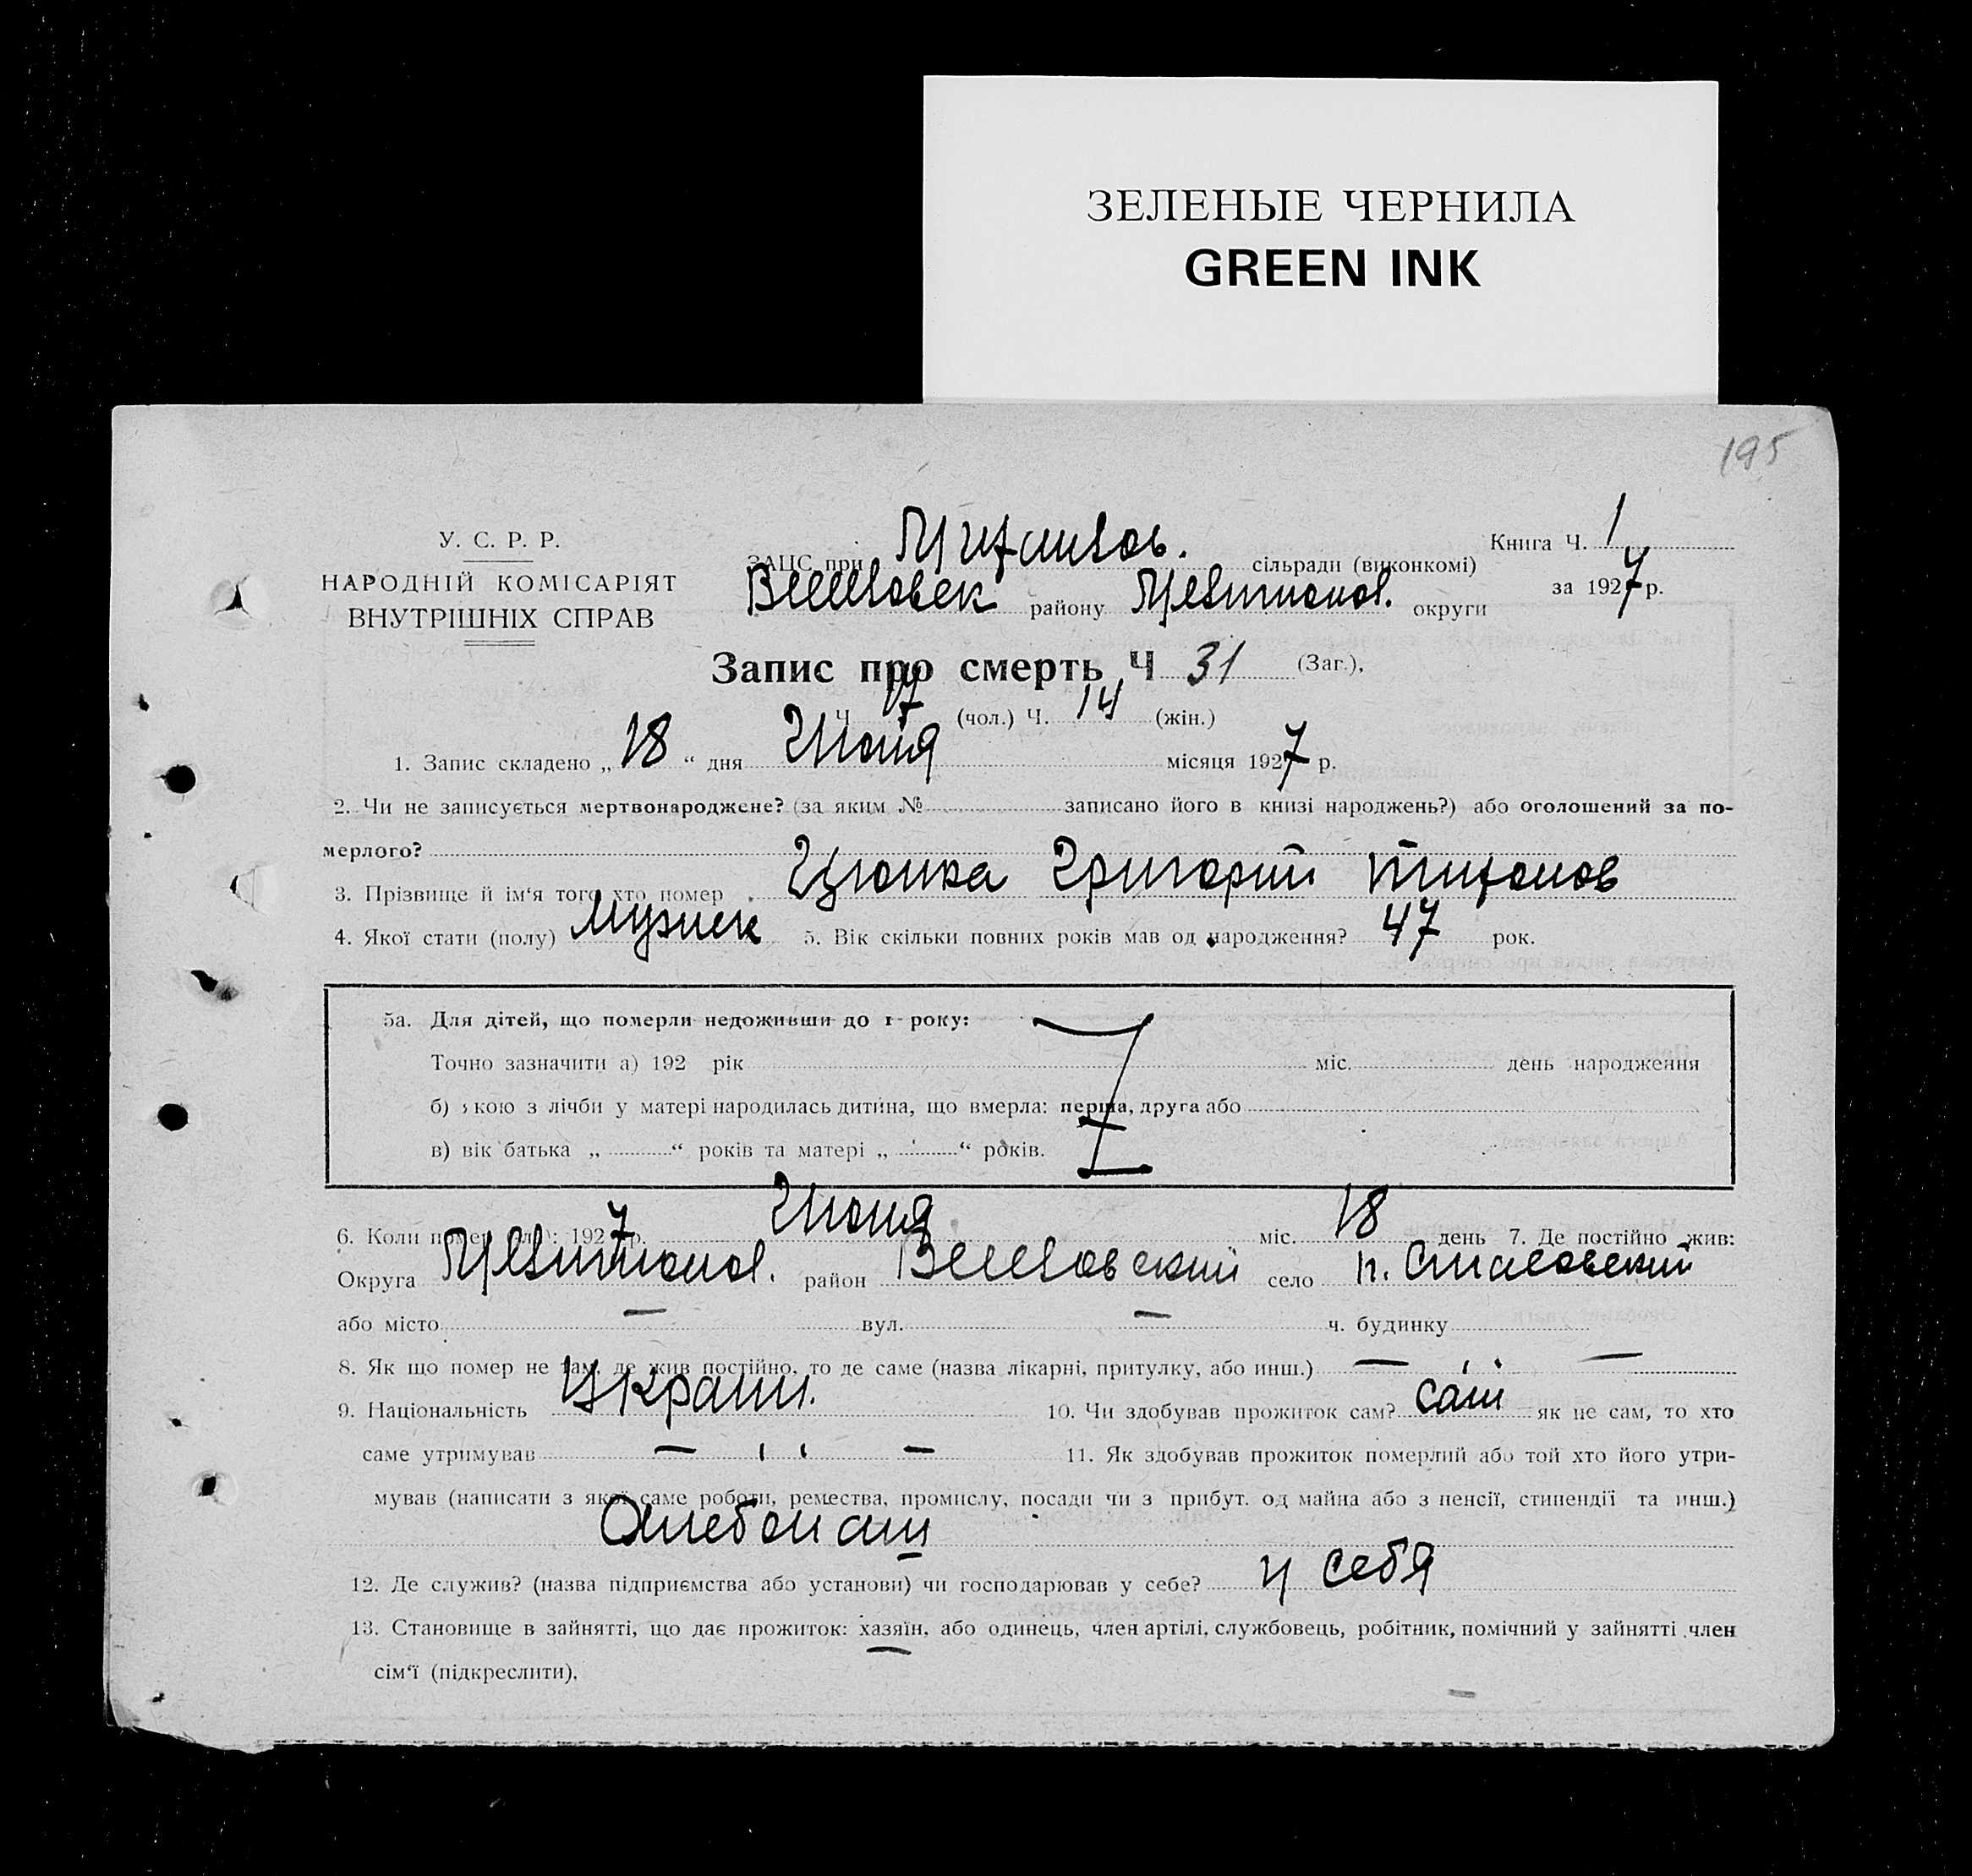 ЗЕЛЕНЫЕ ЧЕРНИЛА
GREEN INK
195
У. С. Р. Р.
НАРОДНІЙ КОМІСАРІЯТ
ВНУТРІШНІХ СПРАВ
ЗАЦС при сільради (виконкомі)
району округи
Книга Ч. 1
за 1927 р.
Запис про смерть Ч 31 (Заг.),
Ч 17 (чол.) Ч. 14 (жін.)
1. Запис складено „18“ дня Июня місяця 1927 р.
2. Чи не записується мертвонароджене? (за яким № записано його в книзі народжень?) або оголошений за по-
мерлого?
3. Прізвище й ім'я того хто помер Григорий
4. Якої стати (полу) Мужск 5. Вік скільки повних років мав од народження? 47 рок.
5а. Для дітей, що померли недоживши до 1 року:
Точно зазначити а) 192 рік міс. день народження
б) якою з лічби у матері народилась дитина, що вмерла: перша, друга або
в) вік батька „ “ років та матері „ “ років.
6. Коли помер 1927 р. Июня міс. 18 день 7. Де постійно жив:
Округа район село
або місто — вул. — ч. будинку
8. Як що помер не там, де жив постійно, то де саме (назва лікарні, притулку, або инш.) — —
9. Національність Украин. 10. Чи здобував прожиток сам? сам як не сам, то хто
саме утримував — — 11. Як здобував прожиток померлий або той хто його утри-
мував (написати з якої саме роботи, ремества, промислу, посади чи з прибут. од майна або з пенсії, стипендії та инш.)
Хлебопаш
12. Де служив? (назва підприємства або установи) чи господарював у себе? у себя
13. Становище в зайнятті, що дає прожиток: хазяїн, або одинець, член артілі, службовець, робітник, помічний у зайнятті член
сім'ї (підкреслити).